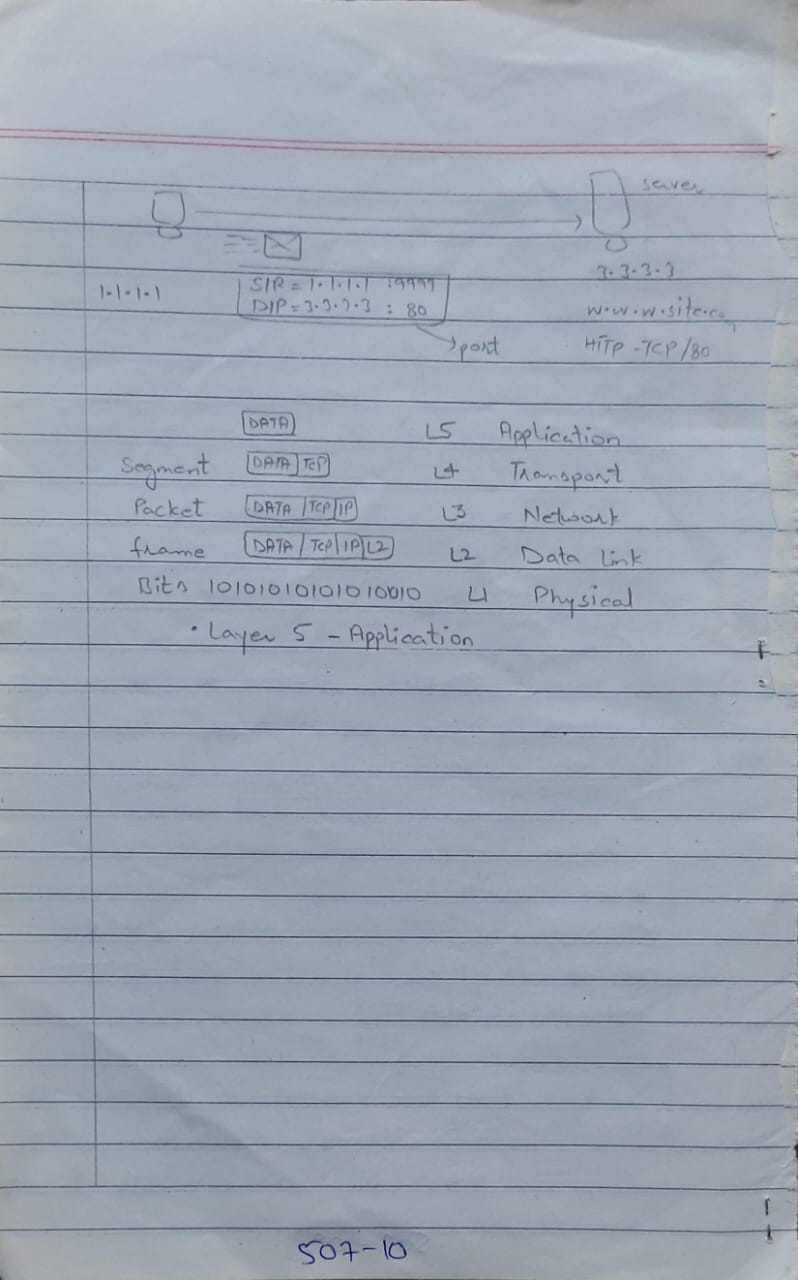 server
3.3.3.3
1.1.1.1 SIP = 1.1.1.1 : 9999
DIP = 3.3.3.3 : 80 w.w.w.site.co
port HTTP - TCP/80
DATA L5 Application
Segment DATA TCP L4 Transport
Packet DATA TCP IP L3 Network
frame DATA TCP IP L2 L2 Data Link
Bits 10101010101010010 L1 Physical
• Layer 5 - Application
507-10